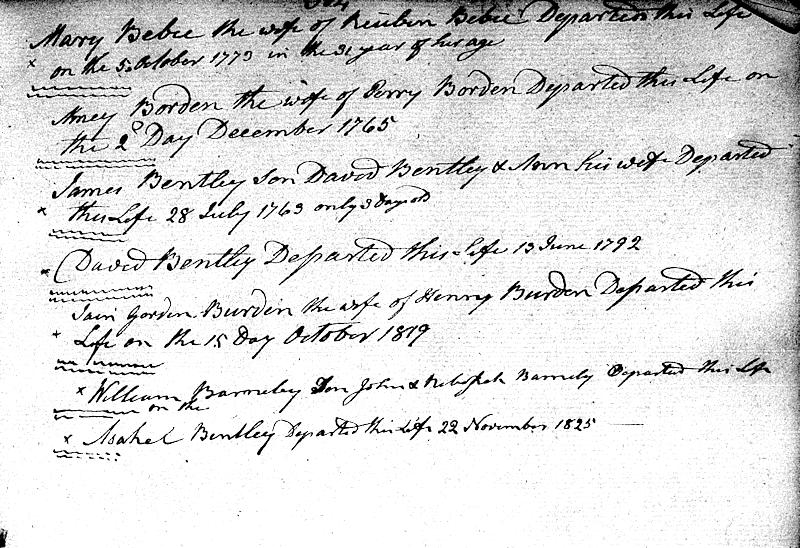 Mary Bebee the wife of Reuben Bebee Departed this Life
x on the 5 October 1773 in the 31 year of her age
Amey Borden the wife of Perry Borden Departed this Life on
the 2d Day December 1765
James Bentley Son David Bentley & Ann his wife Departed
x this Life 28 July 1763 only 3 Days old
x David Bentley Departed this Life 13 June 1792
Gorden Burden the wife of Henry Burden Departed this
x Life on the 15 Day October 1819
x William Barneby Son John & Barneby Departed this Life
on the
x Asahel Bentley Departed this Life 22 November 1825